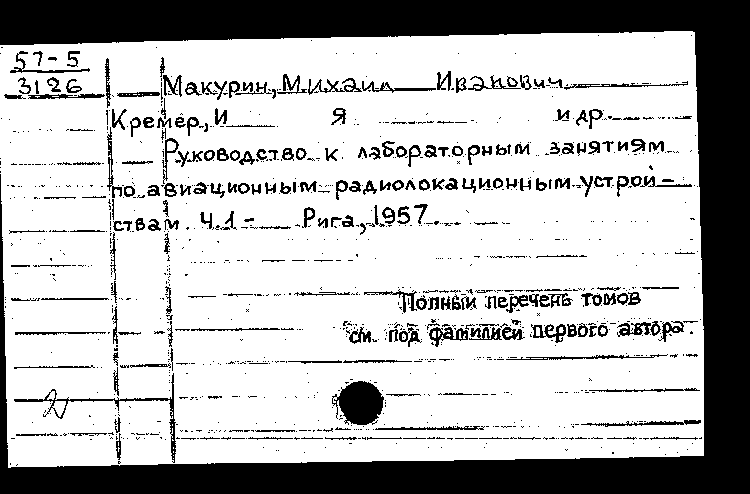 57-5
3126
Макурин, Михаил Иванович
Кремер, И Я и др.
Руководство к лабораторным занятиям
по авиационным радиолокационным устрой-
ствам. Ч.1- Рига, 1957.
Полный перечень томов
см. под фамилией первого автора.
2